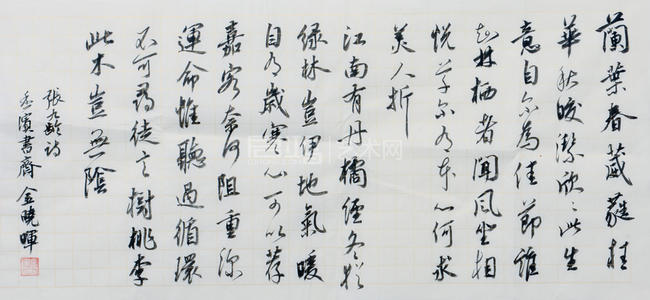 蘭葉春葳蕤桂
華秋皎潔欣〻此生
意自尔為佳節誰
知林栖者聞風坐相
悦草木有本心何求
美人折
江南有丹橘經冬猶
緑林豈伊地氣暖
自有歲寒心可以荐
嘉客奈何阻重深
運命惟遇循環
不可尋徒言樹桃李
此木豈無陰
張九齡詩
濱書齋 金曉暉
术网